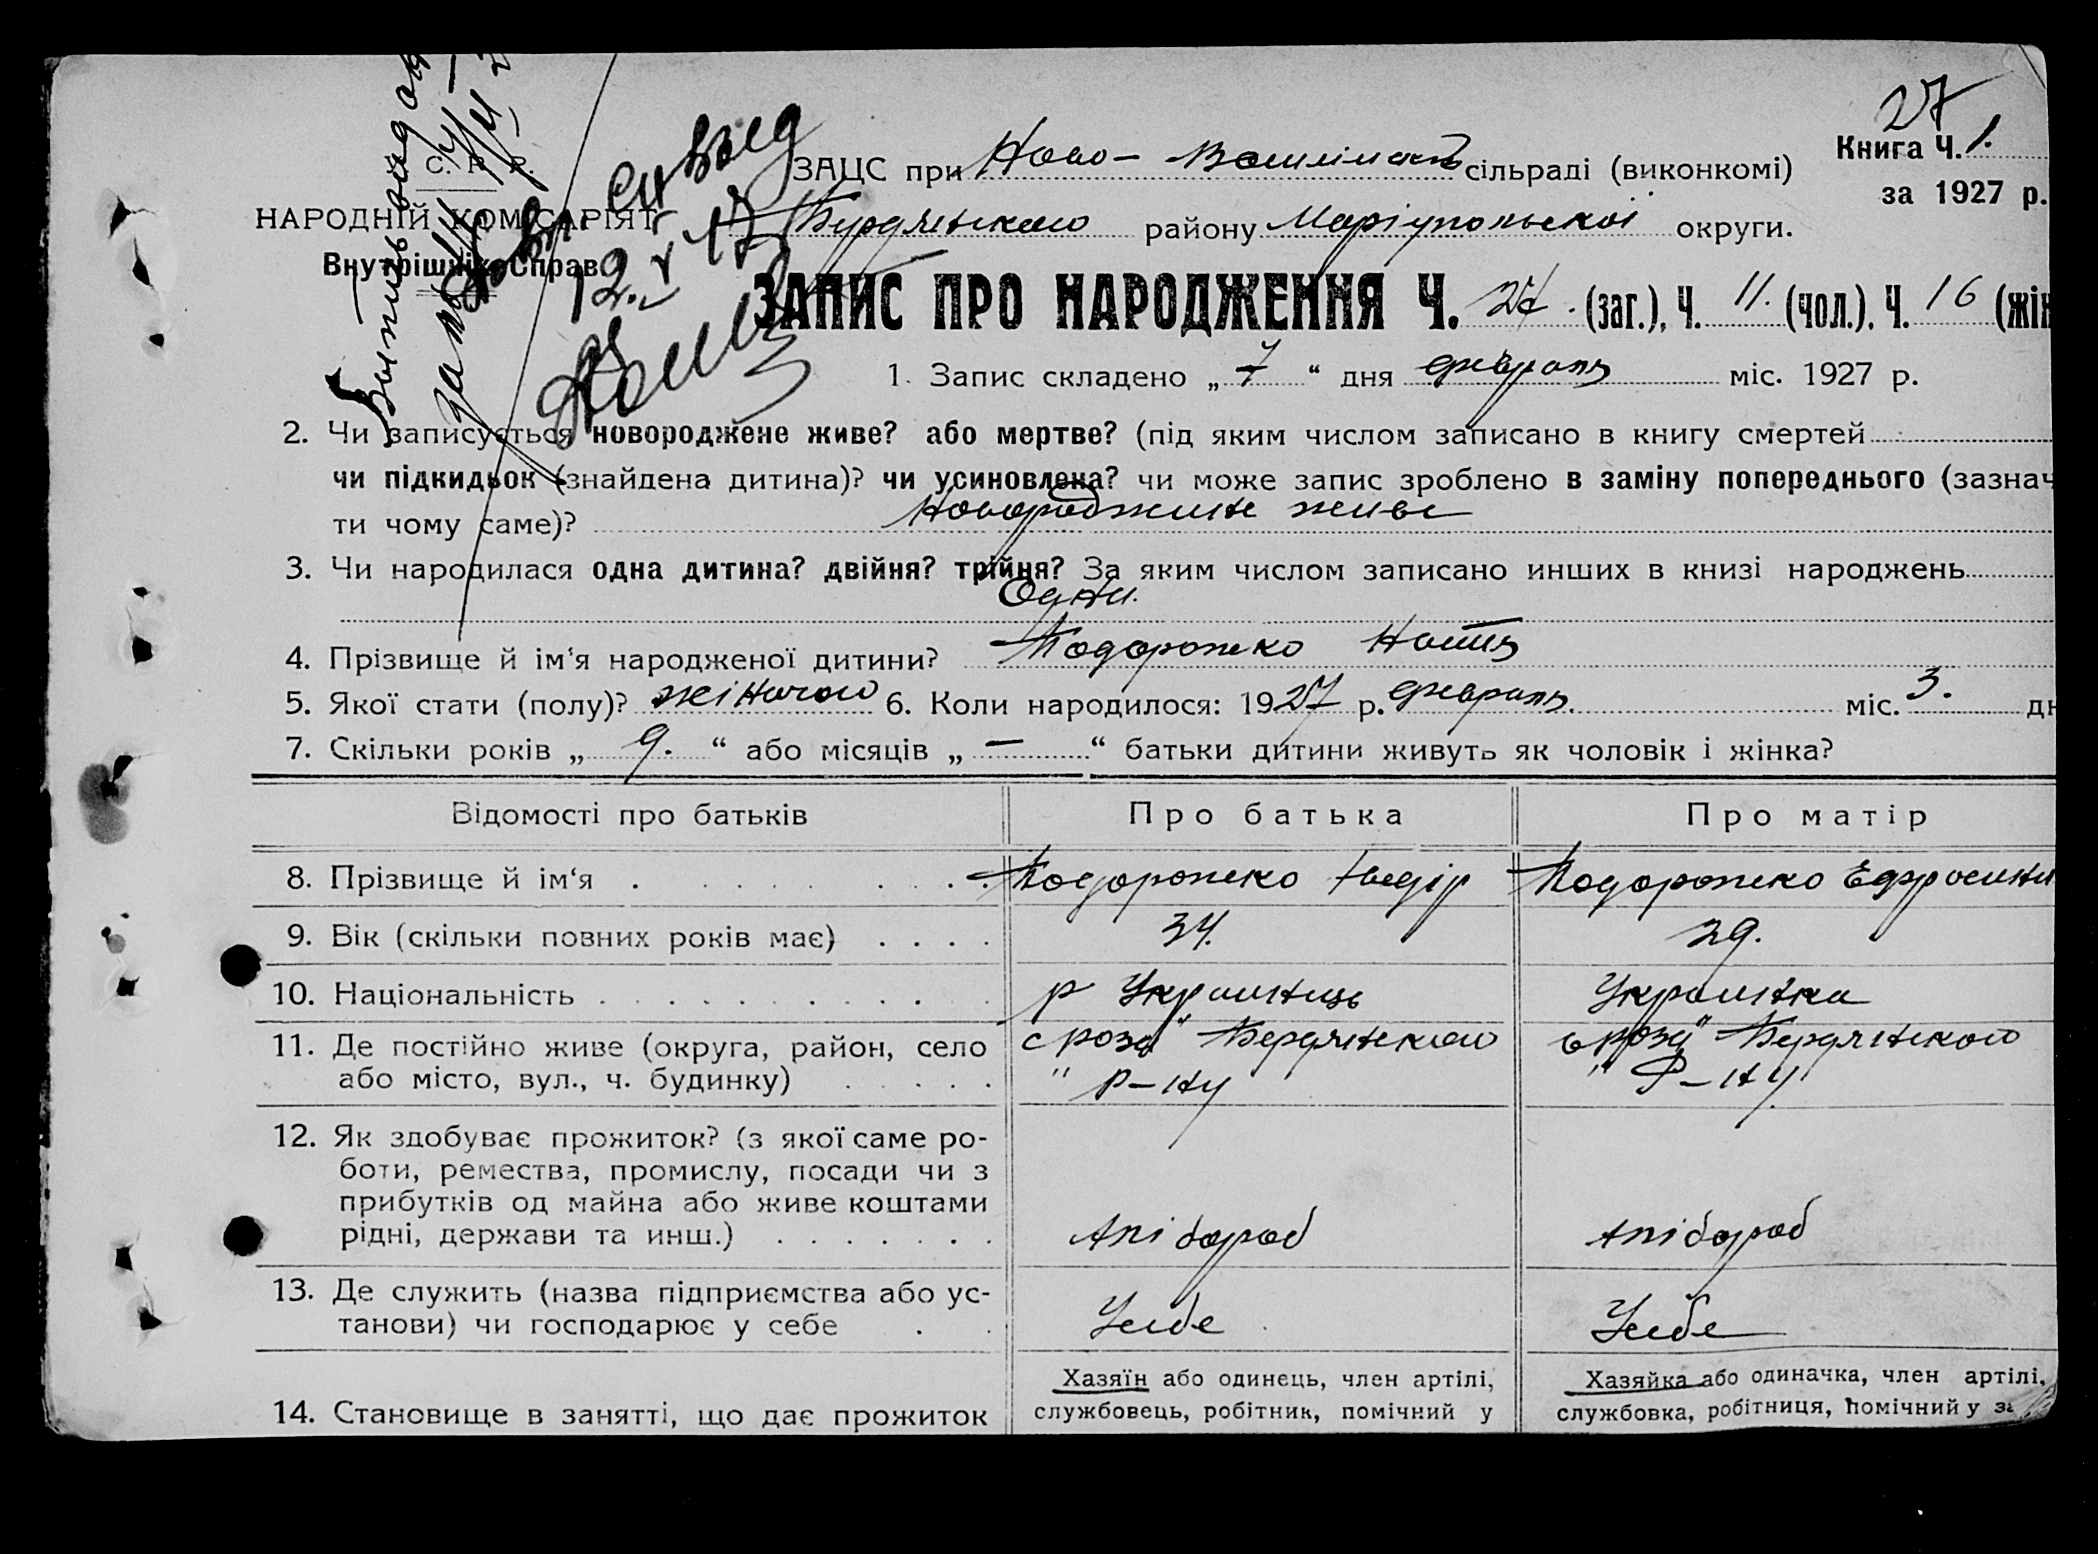 27
ЗАЦС при Ново- сільраді (виконкомі)
Книга Ч. 1.
за 1927 р.
С. Р. Р.
НАРОДНІЙ КОМІСАРІЯТ
Внутрішніх Справ
Бердянського району Маріупольскої округи.
ЗАПИС ПРО НАРОДЖЕННЯ Ч. 27. (заг.), Ч. 11. (чол.), Ч. 16 (жін
1. Запис складено „ 7 “ дня февраля міс. 1927 р.
2. Чи записується новороджене живе? або мертве? (під яким числом записано в книгу смертей
чи підкидьок (знайдена дитина)? чи усиновлена? чи може запис зроблено в заміну попереднього (зазнач
ти чому саме)? Новороджене живе
3. Чи народилася одна дитина? двійня? трійня? За яким числом записано инших в книзі народжень
Одна.
4. Прізвище й ім'я народженої дитини? Подорожко Настя
5. Якої стати (полу)? жіночого 6. Коли народилося: 1927 р. февраля. міс. 3. дн
7. Скільки років „ 9. “ або місяців „ — “ батьки дитини живуть як чоловік і жінка?
Відомості про батьків Про батька Про матір
8. Прізвище й ім‘я Подорожко Федір Подорожко Ефросини
9. Вік (скільки повних років має) 34. 29.
10. Національність Украинець Украинка
11. Де постійно живе (округа, район, село с Роза" Бердянського с Роза" Бердянського
або місто, вул., ч. будинку) " Р-ну " Р-ну
12. Як здобуває прожиток? (з якої саме ро-
боти, ремества, промислу, посади чи з
прибутків од майна або живе коштами
рідні, держави та инш.) хлібороб хлібороб
13. Де служить (назва підприємства або ус-
танови) чи господарює у себе Усебе Усебе
14. Становище в занятті, що дає прожиток
Хазяїн або одинець, член артілі,
службовець, робітник, помічний у
Хазяйка або одиначка, член артілі,
службовка, робітниця, помічний у за